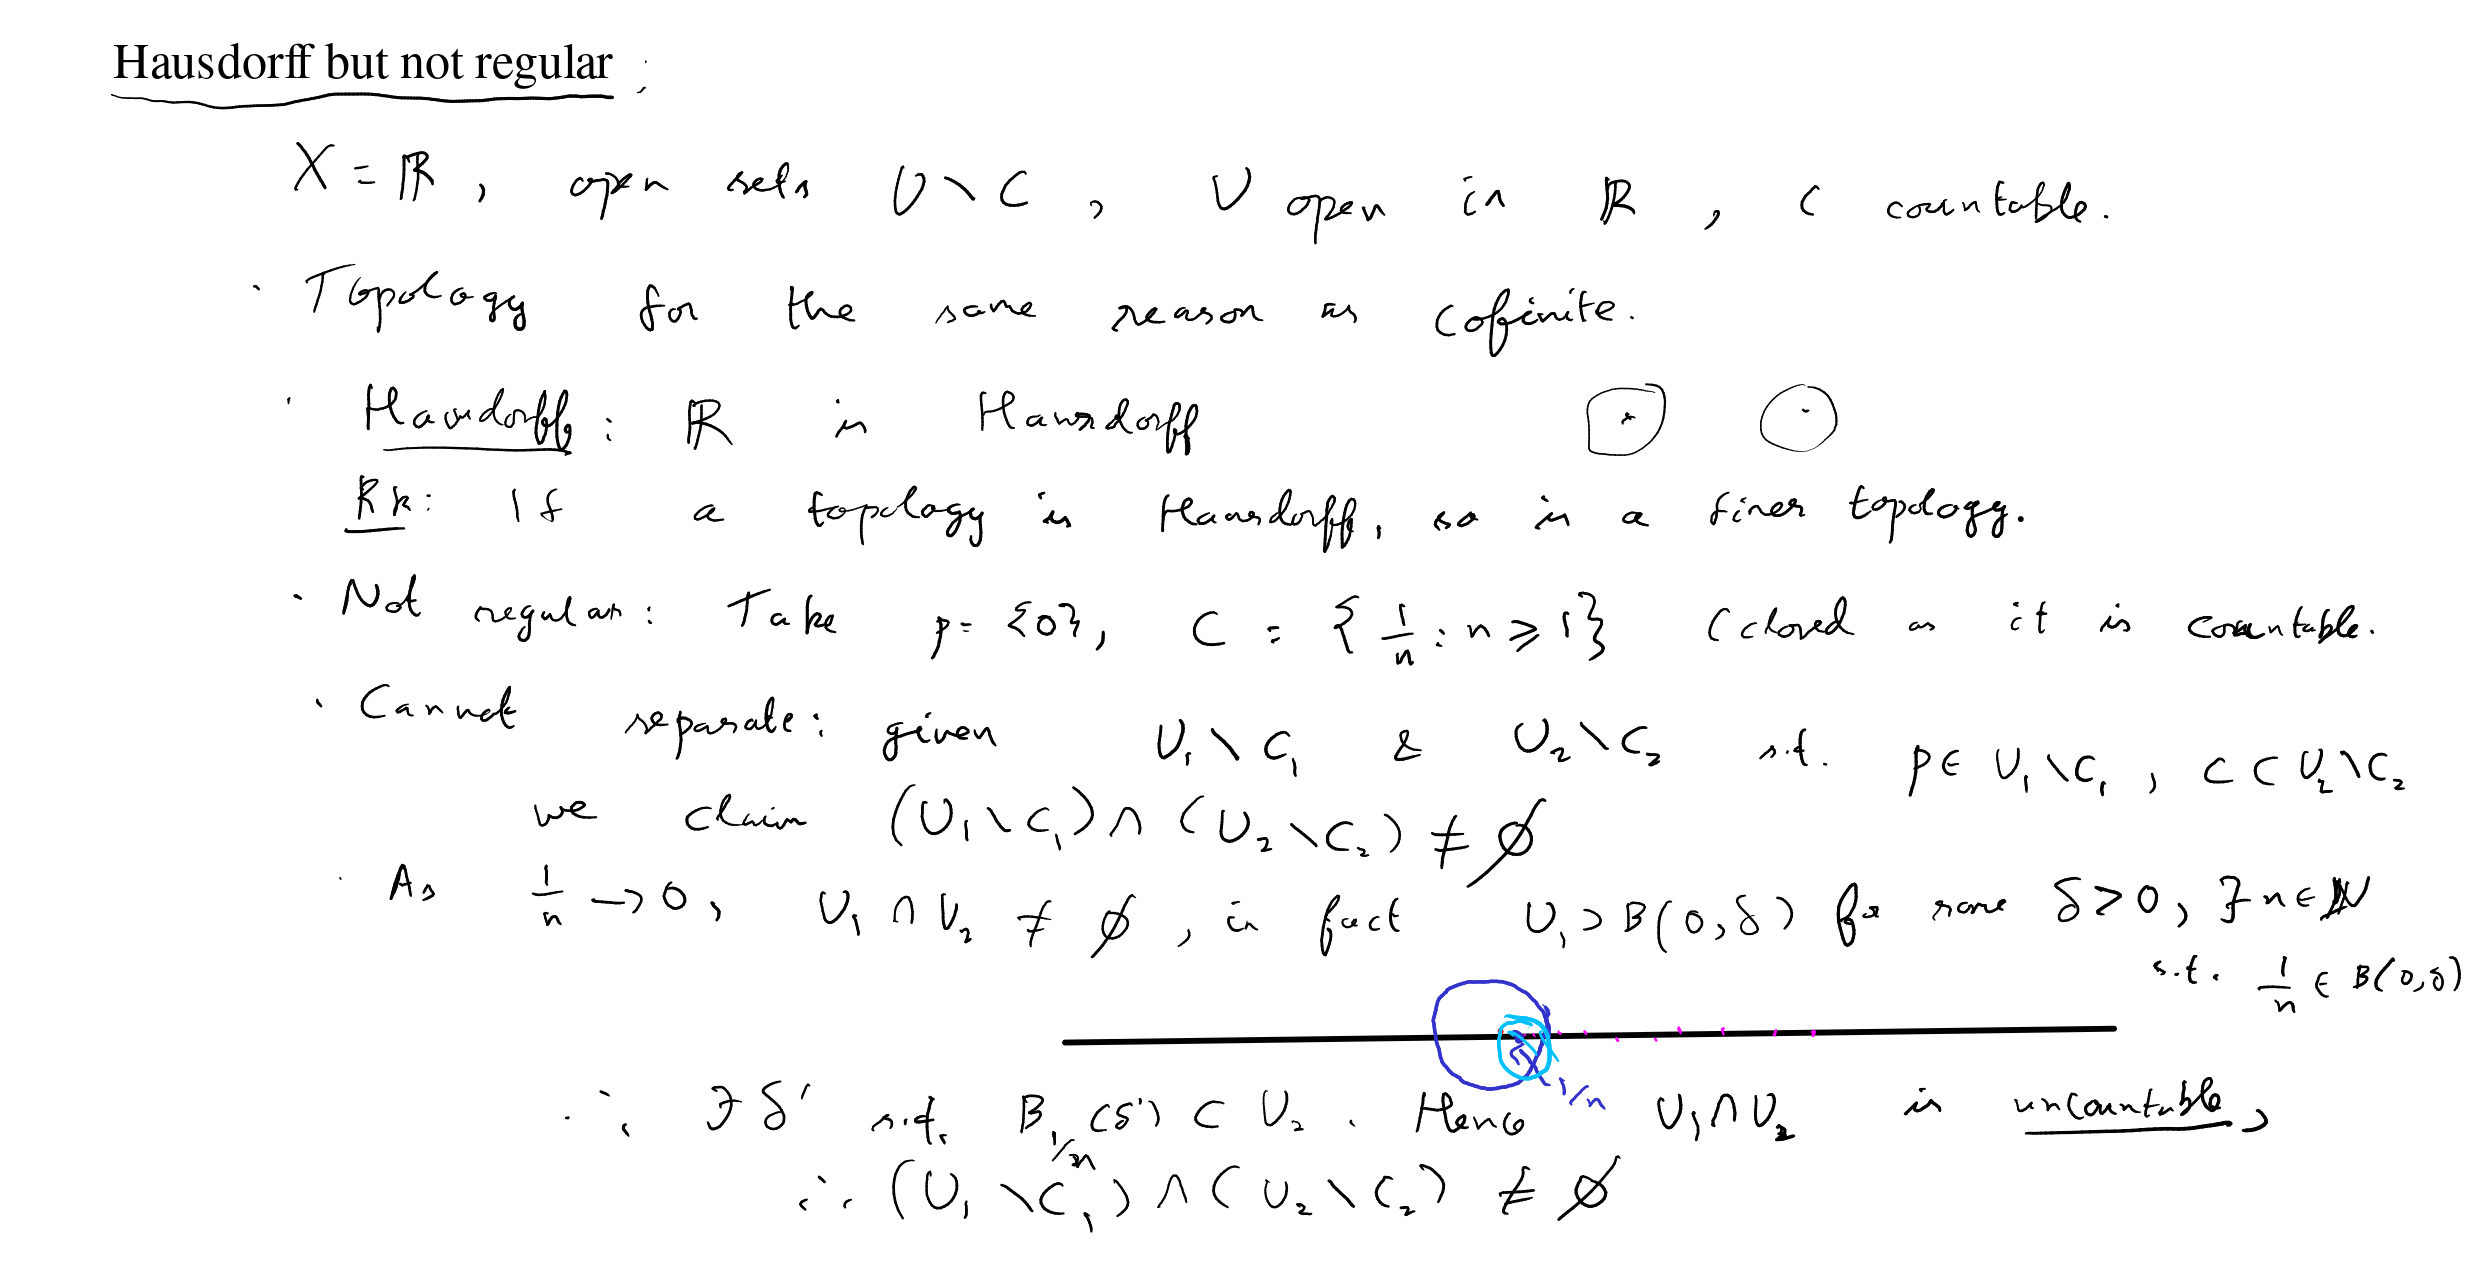 Hausdorff but not regular :
X = ℝ, open sets U \ C, U open in ℝ, C countable.
· Topology for the same reason as cofinite.
· Hausdorff: ℝ is Hausdorff
Rk: If a topology is Hausdorff, so is a finer topology.
· Not regular: Take p = {0}, C = {1/n : n ⩾ 1} (closed as it is countable.
· Cannot separate: given U₁ \ C₁ & U₂ \ C₂ s.t. p ∈ U₁ \ C₁, C ⊂ U₂ \ C₂
we claim (U₁ \ C₁) ∩ (U₂ \ C₂) ≠ ∅
· As 1/n → 0, U₁ ∩ U₂ ≠ ∅, in fact U₁ ⊃ B(0,δ) for some δ > 0, ∃ n ∈ ℕ
s.t. 1/n ∈ B(0,δ)
1/n
∴ ∃ δ' s.t. B_{1/n}(δ') ⊂ U₂. Hence U₁ ∩ U₂ is uncountable,
∴ (U₁ \ C₁) ∩ (U₂ \ C₂) ≠ ∅